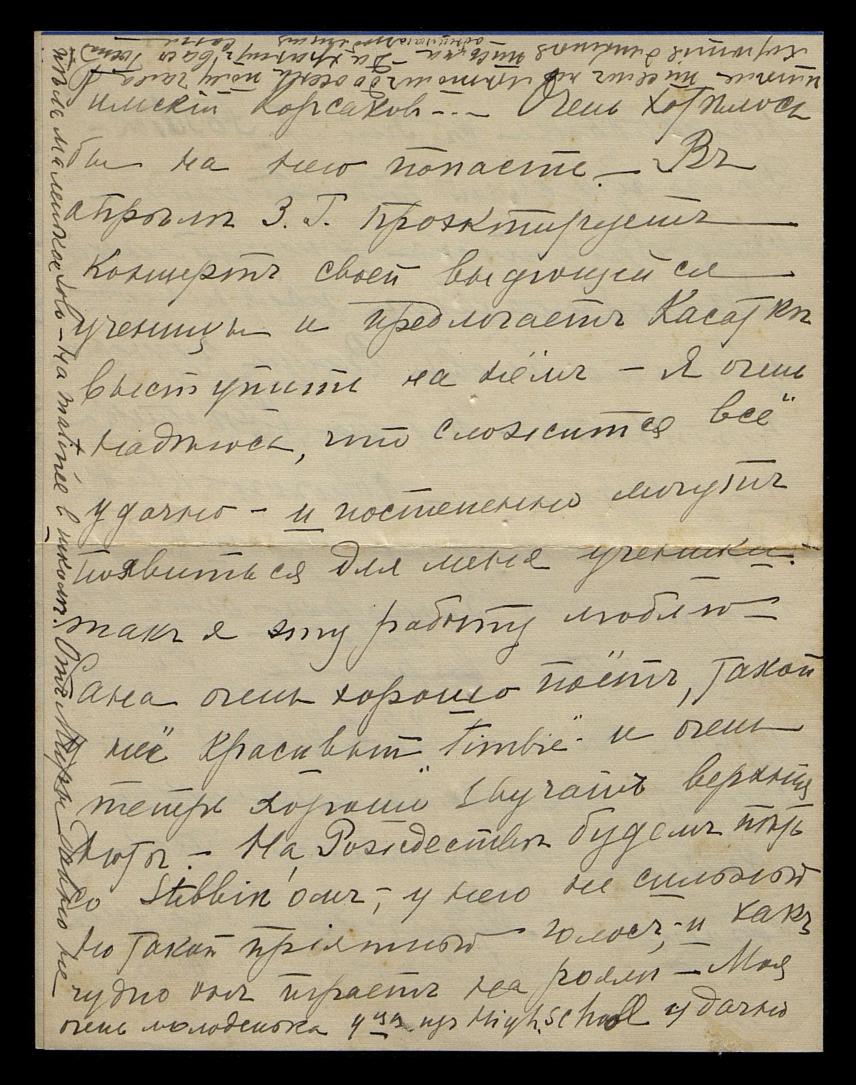 Римскій Корсаковъ --- Очень хотѣлось
бы на него попасть. — Въ
апрѣлѣ З. Г. проэктируетъ
концертъ своей выдующейся
ученицы и предлагаетъ Касаткѣ
выступить на нёмъ — Я очень
надѣюсь, что сложится всё
удачно — и постепенно могутъ
появиться для меня ученики.
такъ я эту работу люблю —
Сана очень хорошо поётъ, такой
неё красивый timbre и очень
теперь хорошо звучатъ верхнія
ноты. — На Рождество будемъ пѣть
со Stibbin'омъ; у него не сильный
но такой пріятный голосъ, и какъ
чудно онъ играетъ на рояли — Моя
очень молоденькая уца изъ High School удачно
пѣла маленькое solo — на matinée въ школѣ. Отъ Муры давно не
писемъ